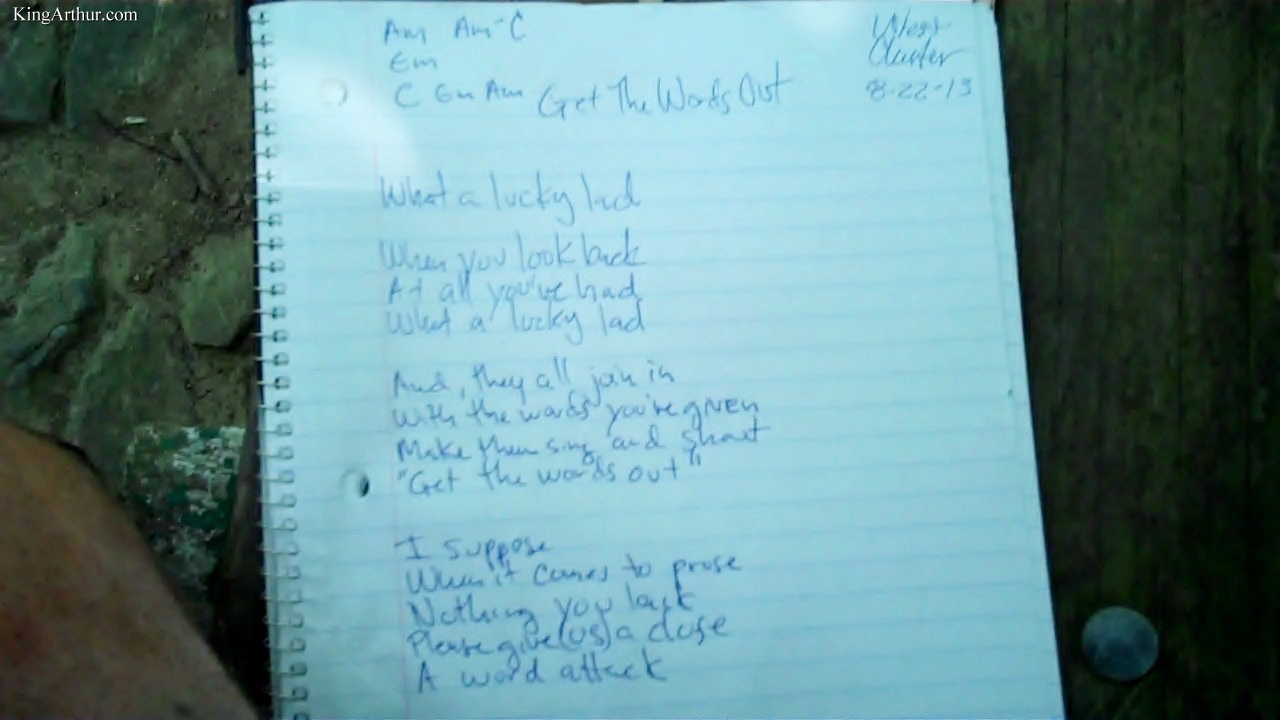 KingArthur.com
Am Am-C
Em
C Em Am Get The Words Out
West
Cluster
8-22-13
What a lucky lad
When you look back
At all you've had
What a lucky lad
And, they all join in
With the words you're given
Make them sing and shout
"Get the words out"
I suppose
When it comes to prose
Nothing you lack
Please give (us) a dose
A word attack